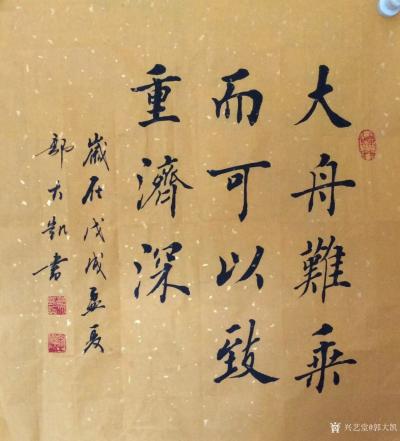 大舟難乘
而可以致
重濟深
歲在戊戌孟夏
郭大凯書
兴艺堂@郭大凯